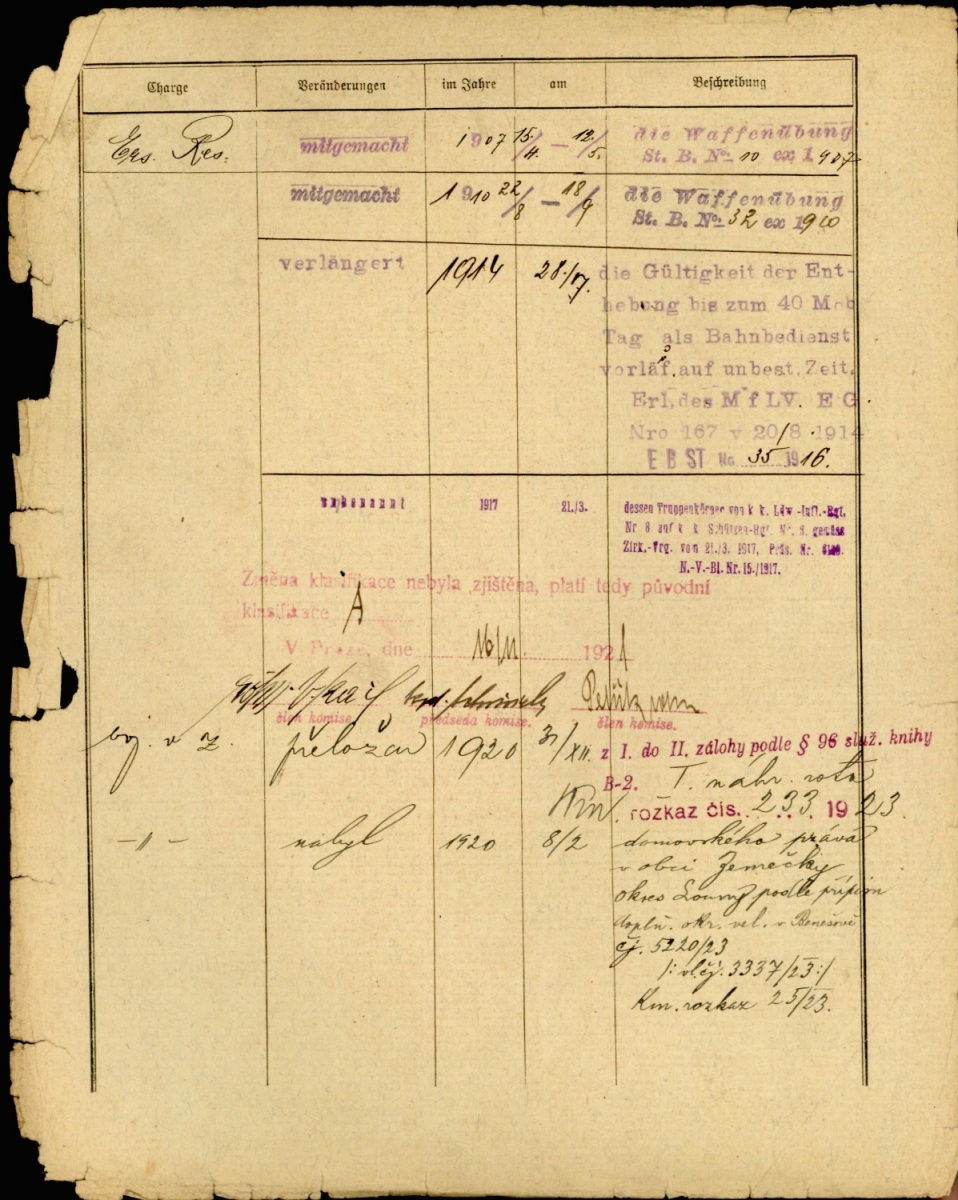 Charge Veränderungen im Jahre am Beschreibung
Ers. Res. mitgemacht 1907 15/4. — 12/5. die Waffenübung
St. B. No. 10 ex 1907
mitgemacht 1910 22/8 — 18/9 die Waffenübung
St. B. No. 32 ex 1910
verlängert 1914 28./7. die Gültigkeit der Ent-
hebung bis zum 40 Mob
Tag als Bahnbedienst
vorläf. auf unbest. Zeit.
Erl. des M f LV. E G.
Nro 167 v 20/8 1914
E B ST No. 35 1916.
umbenannt 1917 21./3. dessen Truppenkörper von k. k. Ldw.-Inft.-Rgt.
Nr 8 auf k. k. Schützen-Rgt. Nr. 8. gemäss
Zirk.-Vrg. vom 21./3. 1917, Präs. Nr.
N.-V.-Bl. Nr. 15./1917.
Změna klasifikace nebyla zjištěna, platí tedy původní
klasifikace A
V Praze, dne 16/11 1921
člen komise. předseda komise. člen komise.
voj. v z. přeložen 1920 31/XII. z I. do II. zálohy podle § 96 služ. knihy
B-2. T. náhr. rota
Km. rozkaz čís. 233 1923.
—〃— nabyl 1920 8/2 domovského práva
v obci Zemečky
okres Louny podle přípisu
doplň. okr. vel. v Benešově
čj. 5220/23
/: vl. čj. 3337/23 :/
Km. rozkaz 25/23.